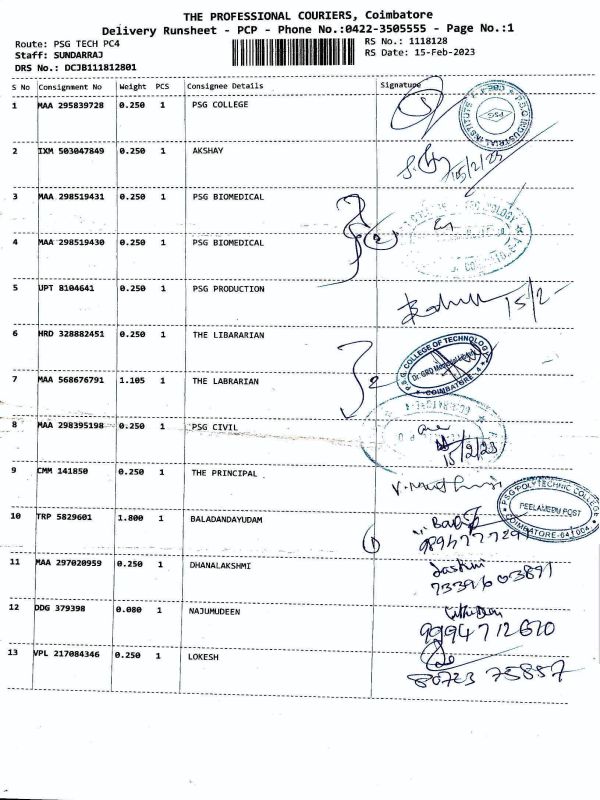 THE PROFESSIONAL COURIERS, Coimbatore
Delivery Runsheet - PCP - Phone No.:0422-3505555 - Page No.:1
Route: PSG TECH PC4
RS No.: 1118128
Staff: SUNDARRAJ
RS Date: 15-Feb-2023
DRS No.: DCJB111812801
S No Consignment No Weight PCS Consignee Details Signature
1 MAA 295839728 0.250 1 PSG COLLEGE
PSG INDUSTRIAL INSTITUTE
PSG
2 IXM 503047849 0.250 1 AKSHAY
15/2/23
3 MAA 298519431 0.250 1 PSG BIOMEDICAL
4 MAA 298519430 0.250 1 PSG BIOMEDICAL
2
5 UPT 8104641 0.250 1 PSG PRODUCTION
15/2
6 HRD 328882451 0.250 1 THE LIBARARIAN
P.S.G. COLLEGE OF TECHNOLOGY
COIMBATORE - 4
7 MAA 568676791 1.105 1 THE LABRARIAN
2
8 MAA 298395198 0.250 1 PSG CIVIL
15/2/23
9 CMM 141850 0.250 1 THE PRINCIPAL
PSG POLYTECHNIC COLLEGE
PEELAMEDU POST
COIMBATORE-641004
10 TRP 5829601 1.800 1 BALADANDAYUDAM
1
11 MAA 297020959 0.250 1 DHANALAKSHMI
7339603891
12 DDG 379398 0.080 1 NAJUMUDEEN
9994712620
13 VPL 217084346 0.250 1 LOKESH
80723 75857